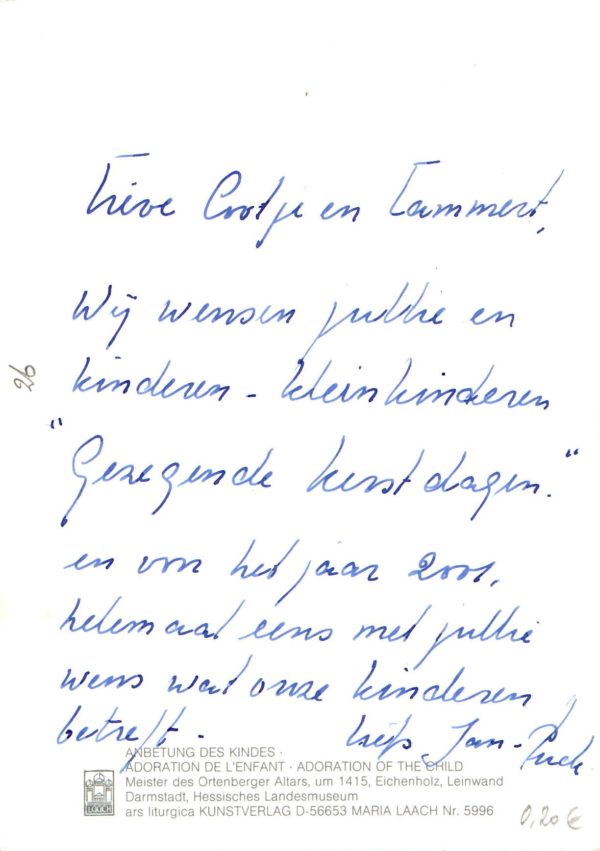 Lieve Cootje en Lammert,
Wij wensen jullie en
kinderen - kleinkinderen
"Gezegende kerstdagen."
en voor het jaar 2001,
helemaal eens met jullie
wens wat onze kinderen
betreft.
Liefs Jan - Puck
26
ANBETUNG DES KINDES ·
ADORATION DE L'ENFANT · ADORATION OF THE CHILD
Meister des Ortenberger Altars, um 1415, Eichenholz, Leinwand
Darmstadt, Hessisches Landesmuseum
ars liturgica KUNSTVERLAG D-56653 MARIA LAACH Nr. 5996
LAACH
0,20 €